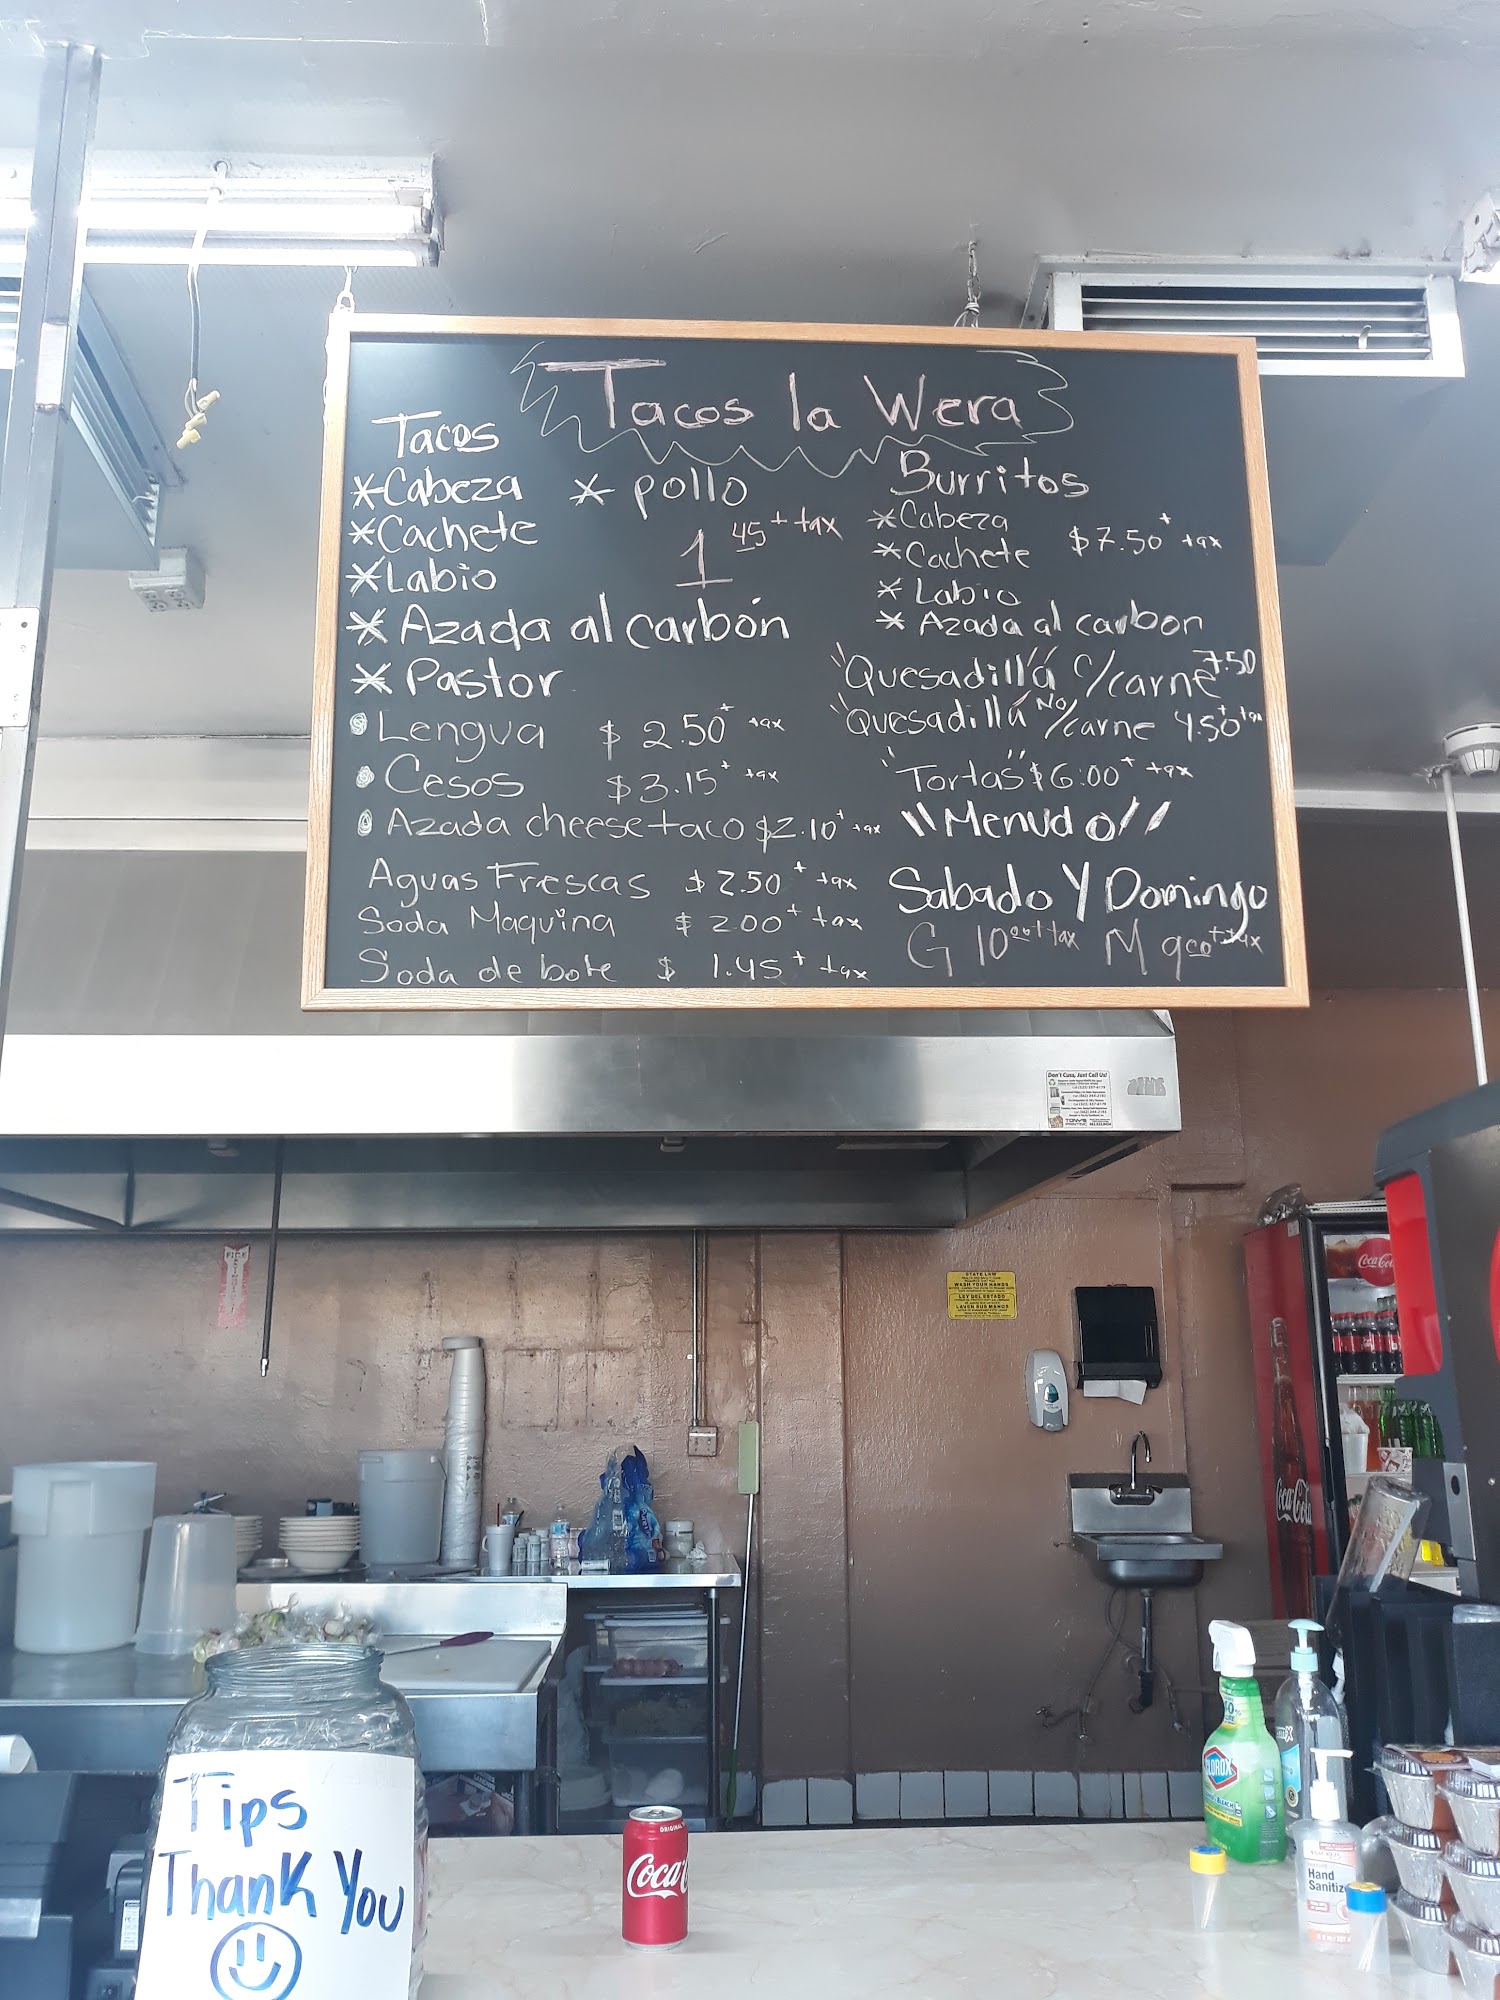 Tacos la Wera
Tacos
*Cabeza * pollo
*Cachete 1 45 + tax
*Labio
* Azada al carbón
* Pastor
Lengua $ 2.50 + tax
Cesos $3.15 + tax
Azada cheese taco $2.10 + tax
Aguas Frescas $ 2.50 + tax
Soda Maquina $ 2.00 + tax
Soda de bote $ 1.45 + tax
Burritos
*Cabeza
*Cachete $7.50 + tax
* Labio
* Azada al carbon
"Quesadilla" c/carne 7.50
"Quesadilla" No/carne 4.50 + tax
"Tortas" $6.00 + tax
"Menudo"
Sabado Y Domingo
G 10 00 + tax M 9 00 + tax
Don't Cuss, Just Call Us!
TONY'S
PRINTING
FIRE
STATE LAW
WASH YOUR HANDS
LEY DEL ESTADO
LAVEN SUS MANOS
Coca-Cola
Coca-Cola
Tips
Thank You
ORIGINAL
Coca
CLOROX
BLEACH
Hand
Sanitiz